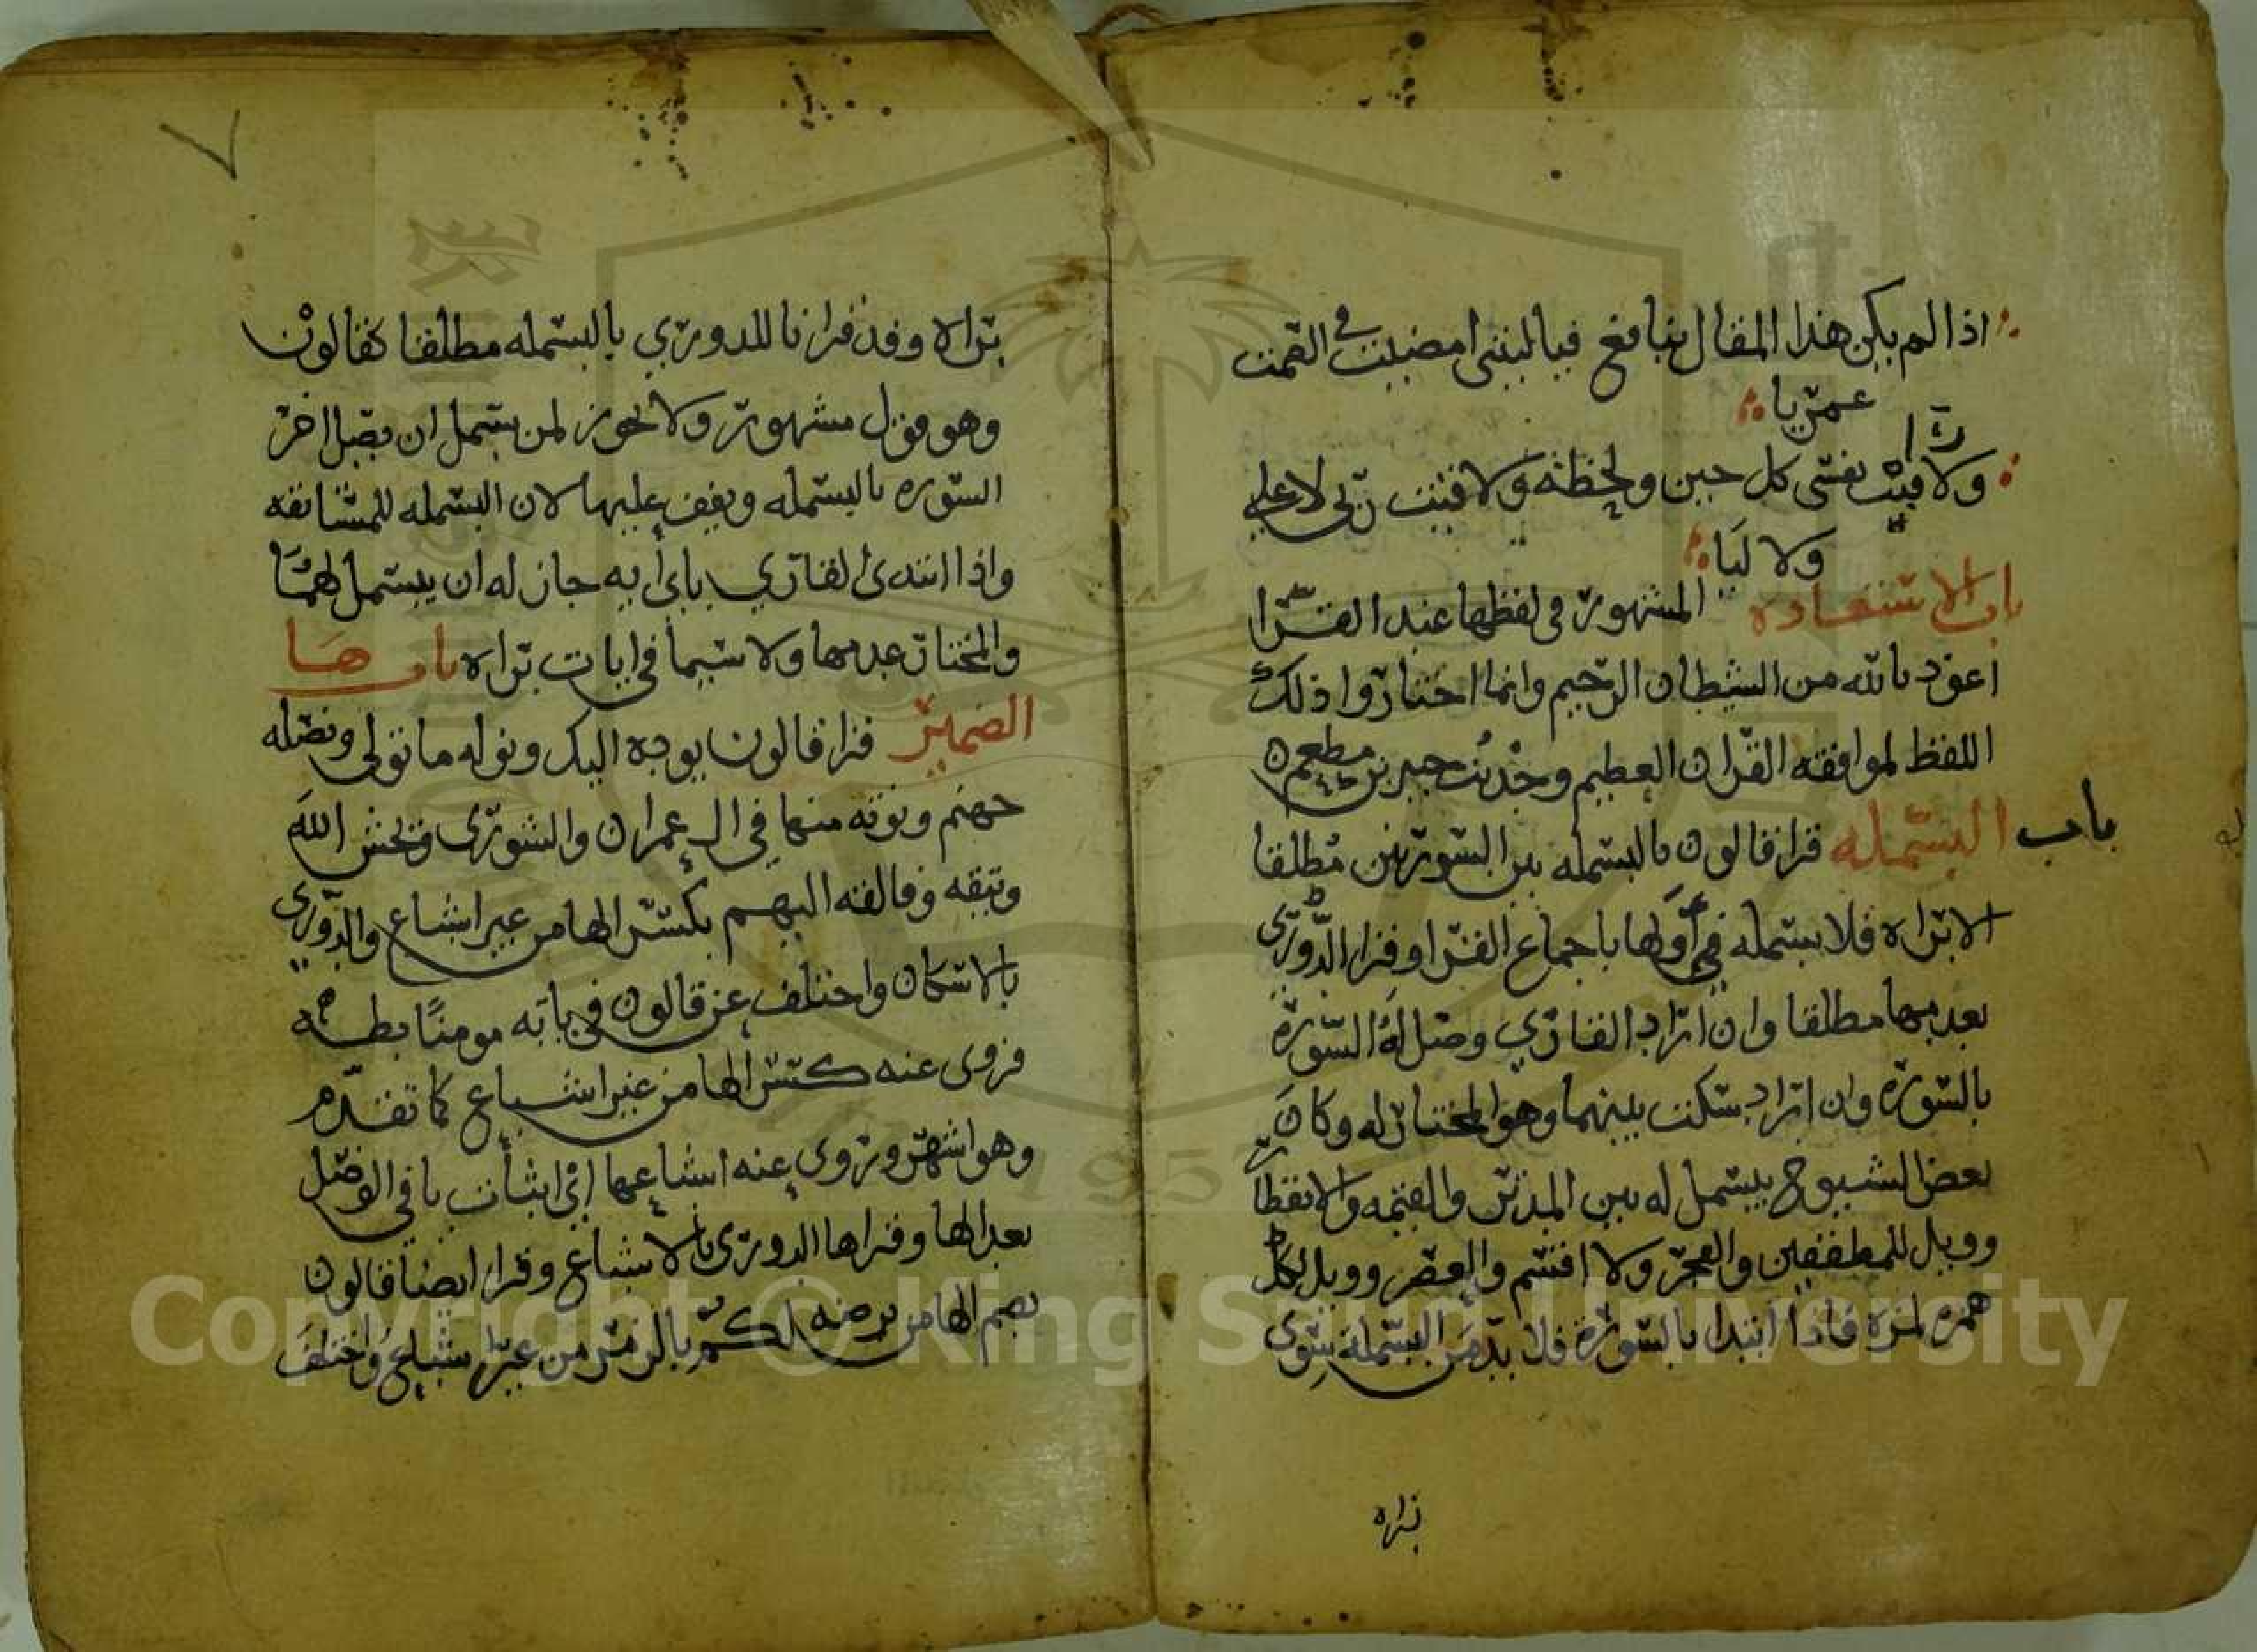 اذا لم يكن هذا المقال بنافع فيا ليتني امضيت في الصمت
عمريا
ولا قيت نفسي كل حين ولحظة ولاقيت ربي لا علي
ولا ليا
باب الاستعاذه المشهور في لفظها عند القرا
اعوذ بالله من الشيطان الرجيم وانما اختاروا ذلك
اللفظ لموافقه القران العظيم وحديث جبير بن مطعم
باب البسمله قرا قالون بالبسمله بين السورتين مطلقا
الا براه فلا بسمله في اولها باجماع القرا وقرا الدوري
بعدمها مطلقا وان اراد القاري وصل له السورة
بالسورة وان اراد سكت بينهما وهو المختار له وكان
بعض الشيوخ يبسمل له بين المدثر والقيمه والانفطار
وويل للمطففين والفجر ولا اقسم والعصر وويل لكل
همزه لمزه فاذا ابتدا بالسورة فلا بد من البسملة سوى
براه
٧
براه وقد قرانا للدوري بالبسمله مطلقا كقالون
وهو قول مشهور ولا يجوز لمن بسمل ان يصل اخر
السوره بالبسمله ويقف عليها لان البسمله للمستانفه
واذا ابتدى القاري باي ايه جاز له ان يبسمل لهما
والمختار عدمها ولا سيما في ايات براه باب ها
الضمير قرا قالون يوده اليك ونوله ما تولى ونصله
جهنم ونوته منها في ال عمران والشورى ويخش الله
ويتقه وفالقه اليهم بكسر الها من غير اشباع والدوري
بالاسكان واختلف عن قالون في ياته مومنا بطه
فروى عنه كسر الها من غير اشباع كما تقدم
وهو اشهر وروي عنه اشباعها اي اثبات يا في الوصل
بعد الها وقراها الدوري بالاشباع وقرا ايضا قالون
بضم الها من يرضه لكم بالزمر من غير اشباع واختلف
Copyright © King Saud University
1957